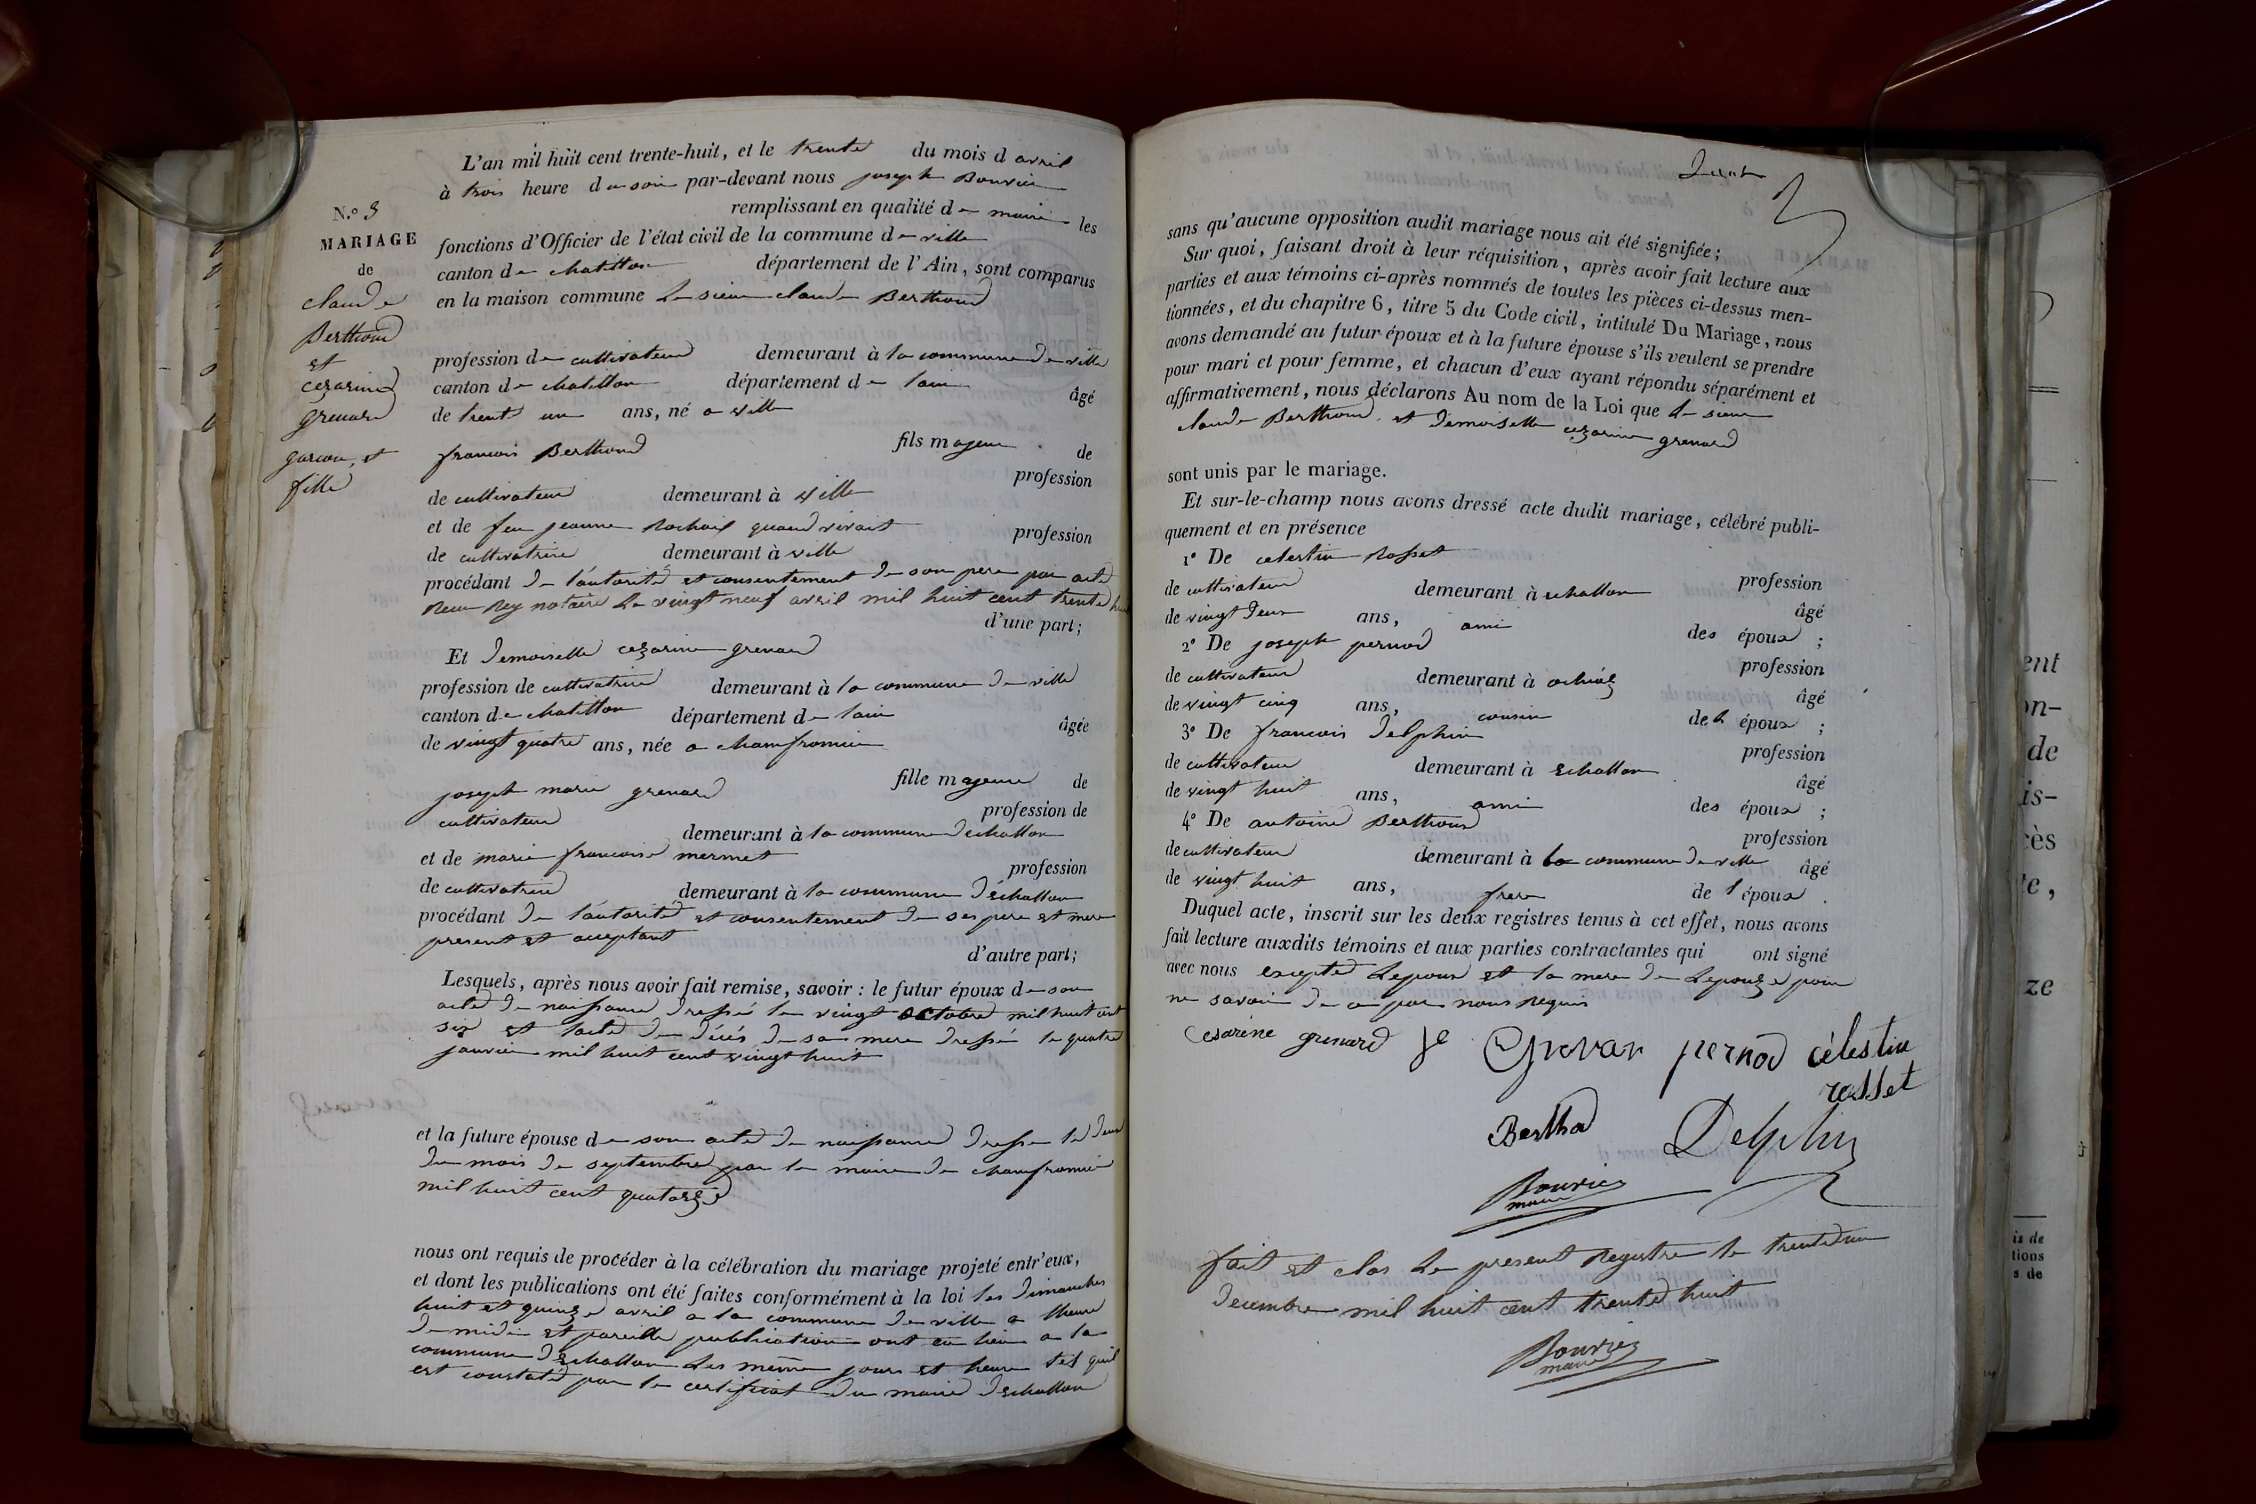 L'an mil huit cent trente-huit, et le trente du mois d avril
à trois heure du soir par-devant nous joseph Bouvier
remplissant en qualité de maire les
fonctions d'Officier de l'état civil de la commune de ville
canton de chatillon département de l'Ain, sont comparus
en la maison commune le sieur claude Berthoud
N.º 3
MARIAGE
de
claude
Berthoud
et
cezarine
grenard
garcon, et
fille
profession de cultivateur demeurant à la commune de ville
canton de chatillon département de lain âgé
de trent un ans, né a ville
fils majeur de
francois Berthoud profession
de cultivateur demeurant à ville
et de feu jeanne Rochaix quand vivait profession
de cultivatrice demeurant à ville
procédant de l'autorité et consentement de son pere par acte
Recu Rey notaire le vingt neuf avril mil huit cent trente hui
d'une part;
Et demoiselle cezarine grenard
profession de cultivatrice demeurant à la commune de ville
canton de chatillon département de lain âgée
de vingt quatre ans, née a chamfromier
fille majeure de
joseph marie grenard profession de
cultivateur demeurant à la commune dechallon
et de marie francoise mermet profession
de cultivatrice demeurant à la commune d'échallon
procédant de l'autorité et consentement de ses pere et mere
present et acceptant
d'autre part;
Lesquels, après nous avoir fait remise, savoir : le futur époux de son
acte de naissance dressé le vingt octobre mil huit cent
six et l'acte de décés de sa mere dressé le quatre
janvier mil huit cent vingt huit
et la future épouse de son acte de naissance dresse le deux
du mois de septembre par le maire de chamfromier
mil huit cent quatorze
nous ont requis de procéder à la célébration du mariage projeté entr'eux,
et dont les publications ont été faites conformément à la loi les dimanches
huit et quinze avril a la commune de ville a lheure
de midi et pareille publication ont eu lieu a la
commune dechallon les même jours et heure tel quil
est constaté par le certificat du maire dechallon
sans qu'aucune opposition audit mariage nous ait été signifiée;
Sur quoi, faisant droit à leur réquisition, après avoir fait lecture aux
parties et aux témoins ci-après nommés de toutes les pièces ci-dessus men-
tionnées, et du chapitre 6, titre 5 du Code civil, intitulé Du Mariage, nous
avons demandé au futur époux et à la future épouse s'ils veulent se prendre
pour mari et pour femme, et chacun d'eux ayant répondu séparément et
affirmativement, nous déclarons Au nom de la Loi que le sieur
claude Berthoud et demoiselle cezarine grenard
sont unis par le mariage.
Et sur-le-champ nous avons dressé acte dudit mariage, célébré publi-
quement et en présence
1º De celestin Rosset profession
de cultivateur demeurant à echallon âgé
de vingt deux ans, ami des époux ;
2º De joseph pernod profession
de cultivateur demeurant à ochiaz âgé
de vingt cinq ans, cousin de l époux ;
3º De francois delphin profession
de cultivateur demeurant à Echallon âgé
de vingt huit ans, ami des époux ;
4º De antoine Berthoud profession
de cultivateur demeurant à la commune de ville âgé
de vingt huit ans, frere de l époux .
Duquel acte, inscrit sur les deux registres tenus à cet effet, nous avons
fait lecture auxdits témoins et aux parties contractantes qui ont signé
avec nous excepté Lepoux et la mere de Lepouze pour
ne savoir de ce par nous Requis
Cesarine grenard Je Grenar pernod célestin
rosset
Berthod Delphin
Bouvier
maire
fait et clos le present Registre le trente un
decembre mil huit cent trente huit
Bouvier
maire